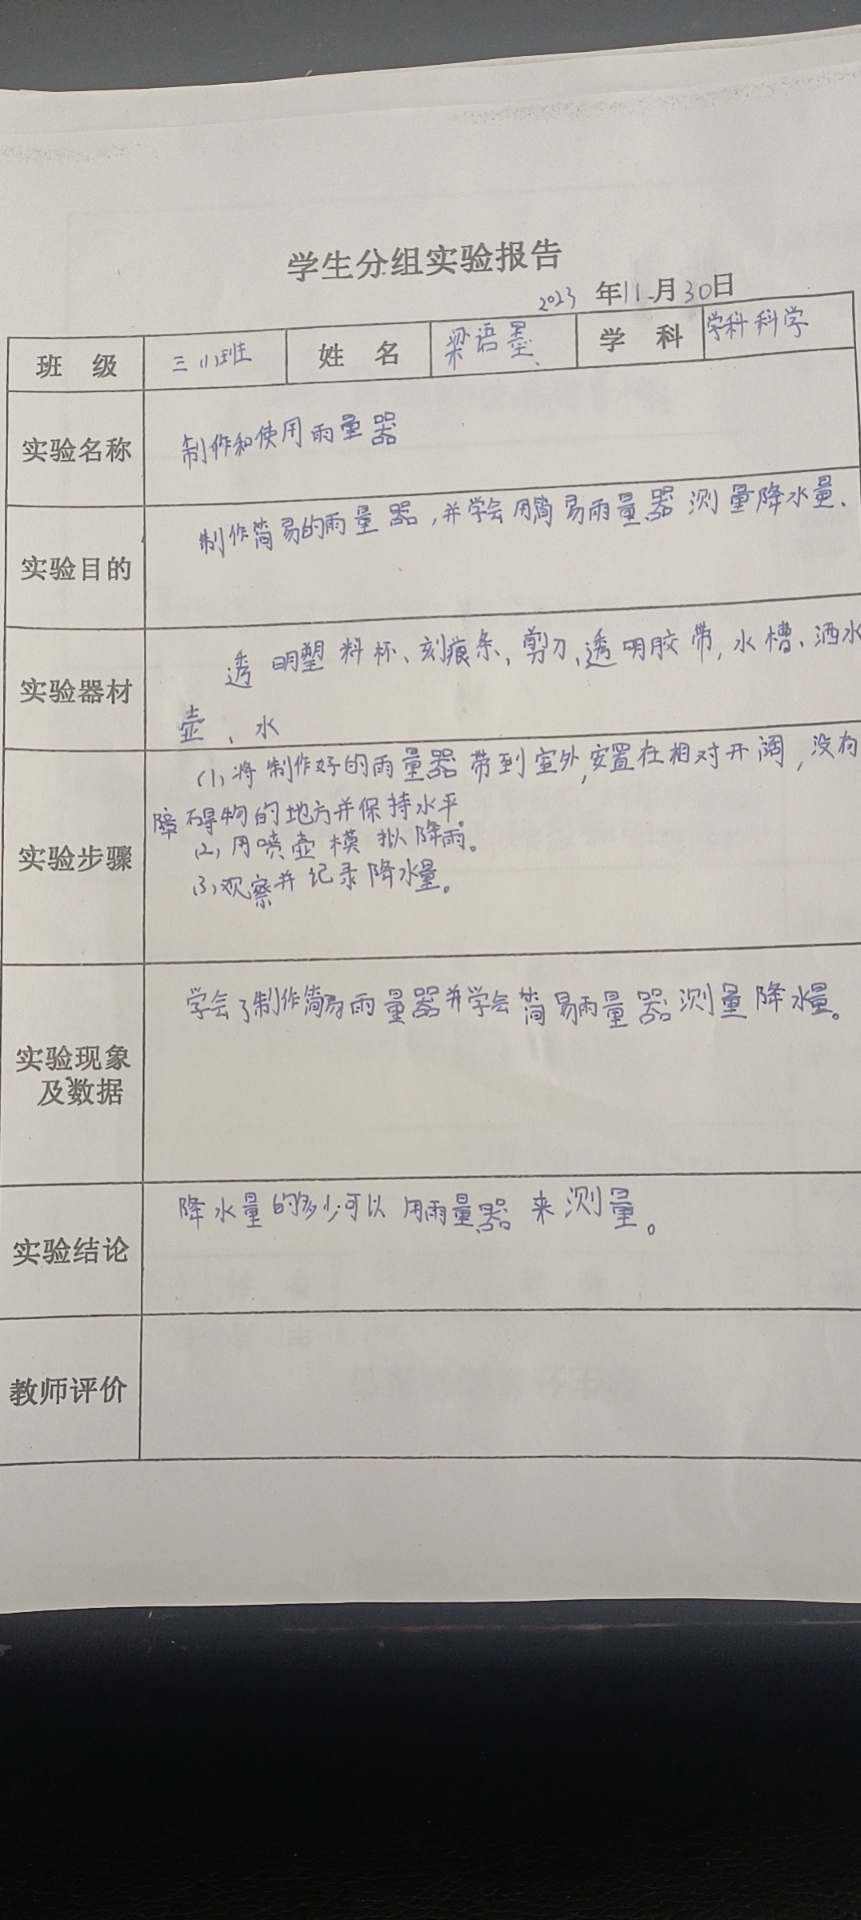 学生分组实验报告
2023 年11月30日
班 级 三(1)班 姓 名 梁语墨 学 科 学科科学
实验名称 制作和使用雨量器
实验目的 制作简易的雨量器,并学会用简易雨量器测量降水量、
实验器材 透明塑料杯、刻痕条、剪刀、透明胶带,水槽、洒水
壶、水
实验步骤 (1)将制作好的雨量器带到室外,安置在相对开阔,没有
障碍物的地方并保持水平。
(2)用喷壶模拟降雨。
(3)观察并记录降水量。
实验现象
及数据
学会了制作简易雨量器并学会简易雨量器测量降水量。
实验结论 降水量的多少可以用雨量器来测量。
教师评价